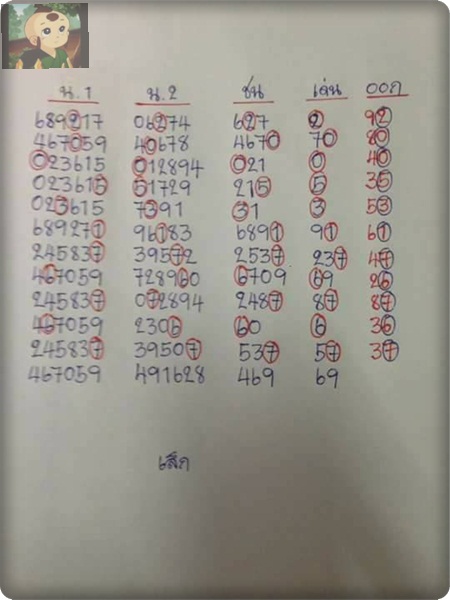 น.1 น.2 ชน เด่น ออก
689217 06274 627 2 92
467059 40678 4670 70 80
023615 012894 021 0 40
023615 51729 215 5 35
023615 7391 31 3 53
689271 96183 6891 91 61
245837 39572 2537 237 47
467059 728960 6709 69 26
245837 072894 2487 87 87
467059 2306 60 6 36
245837 39507 537 57 37
467059 491628 469 69
เส็ก